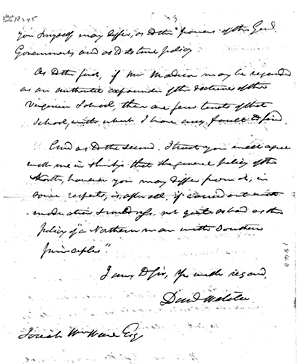 you & myself may differ, as to the powers of the Genl.
Government, and as to its true policy.
As to the first, if Mr Madison may be regarded
as an authentic expounder of the doctrines of the
Virginia School, there are few tenets of that
School, with which I have any fault to find.
And as to the second, I trust you will agree
with me in thinking that the general policy of the
North, however you may differ from it, in
some respects, is, after all, if carried out with
moderation & mildness, not quite as bad as the
policy of "a Northern man with Southern
principles"
I am, D Sir, Yrs with regard,
Danl Webster
Josiah Wm Ware Esq